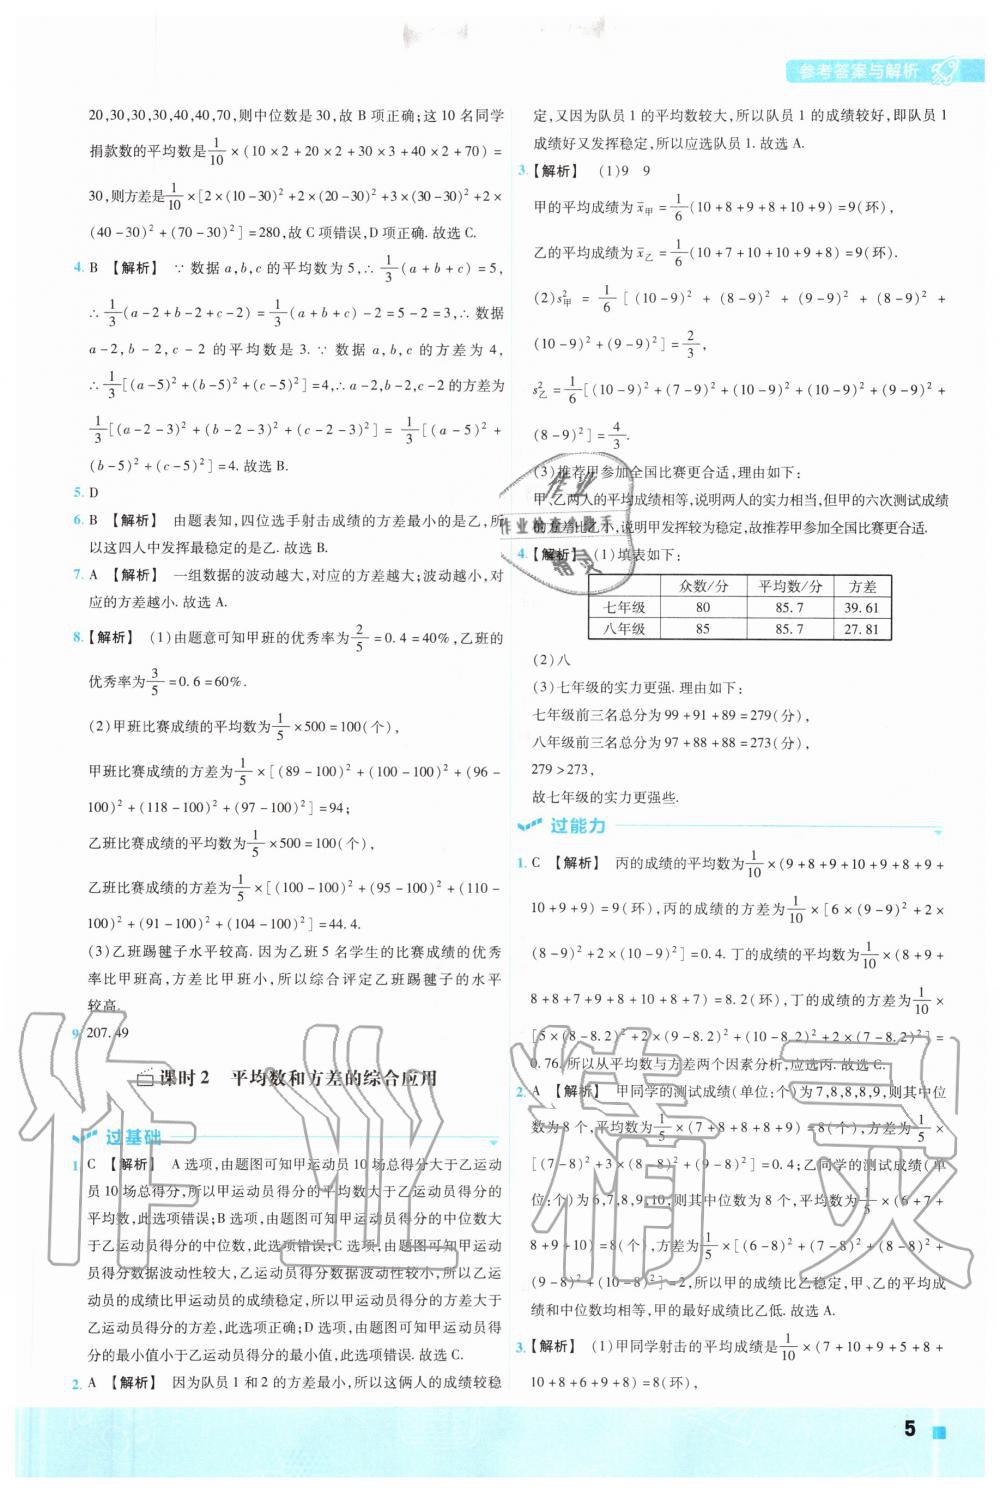 参考答案与解析
20,30,30,30,40,40,70,则中位数是30,故B项正确;这10名同学
捐款数的平均数是1/10×(10×2+20×2+30×3+40×2+70)=
30,则方差是1/10×[2×(10-30)²+2×(20-30)²+3×(30-30)²+2×
(40-30)²+(70-30)²]=280,故C项错误,D项正确.故选C.
4. B 【解析】 ∵数据a,b,c的平均数为5,∴1/3(a+b+c)=5,
∴1/3(a-2+b-2+c-2)=1/3(a+b+c)-2=5-2=3,∴数据
a-2,b-2,c-2的平均数是3.∵数据a,b,c的方差为4,
∴1/3[(a-5)²+(b-5)²+(c-5)²]=4,∴a-2,b-2,c-2的方差为
1/3[(a-2-3)²+(b-2-3)²+(c-2-3)²]=1/3[(a-5)²+
(b-5)²+(c-5)²]=4.故选B.
5. D
6. B 【解析】 由题表知,四位选手射击成绩的方差最小的是乙,所
以这四人中发挥最稳定的是乙.故选B.
7. A 【解析】 一组数据的波动越大,对应的方差越大;波动越小,对
应的方差越小.故选A.
8.【解析】 (1)由题意可知甲班的优秀率为2/5=0.4=40%,乙班的
优秀率为3/5=0.6=60%.
(2)甲班比赛成绩的平均数为1/5×500=100(个),
甲班比赛成绩的方差为1/5×[(89-100)²+(100-100)²+(96-
100)²+(118-100)²+(97-100)²]=94;
乙班比赛成绩的平均数为1/5×500=100(个),
乙班比赛成绩的方差为1/5×[(100-100)²+(95-100)²+(110-
100)²+(91-100)²+(104-100)²]=44.4.
(3)乙班踢毽子水平较高.因为乙班5名学生的比赛成绩的优秀
率比甲班高,方差比甲班小,所以综合评定乙班踢毽子的水平
较高.
9. 207.49
课时2 平均数和方差的综合应用
过基础
1. C 【解析】 A选项,由题图可知甲运动员10场总得分大于乙运动
员10场总得分,所以甲运动员得分的平均数大于乙运动员得分的
平均数,此选项错误;B选项,由题图可知甲运动员得分的中位数大
于乙运动员得分的中位数,此选项错误;C选项,由题图可知甲运动员
得分数据波动性较大,乙运动员得分数据波动性较小,所以乙运动
员的成绩比甲运动员的成绩稳定,所以甲运动员得分的方差大于
乙运动员得分的方差,此选项正确;D选项,由题图可知甲运动员得
分的最小值小于乙运动员得分的最小值,此选项错误.故选C.
2. A 【解析】 因为队员1和2的方差最小,所以这俩人的成绩较稳
定,又因为队员1的平均数较大,所以队员1的成绩较好,即队员1
成绩好又发挥稳定,所以应选队员1.故选A.
3.【解析】 (1)9 9
甲的平均成绩为x̄甲=1/6(10+8+9+8+10+9)=9(环),
乙的平均成绩为x̄乙=1/6(10+7+10+10+9+8)=9(环).
(2)s²甲=1/6[(10-9)²+(8-9)²+(9-9)²+(8-9)²+
(10-9)²+(9-9)²]=2/3,
s²乙=1/6[(10-9)²+(7-9)²+(10-9)²+(10-9)²+(9-9)²+
(8-9)²]=4/3.
(3)推荐甲参加全国比赛更合适,理由如下:
甲、乙两人的平均成绩相等,说明两人的实力相当,但甲的六次测试成绩
的方差比乙小,说明甲发挥较为稳定,故推荐甲参加全国比赛更合适.
4.【解析】 (1)填表如下:
众数/分 平均数/分 方差
七年级 80 85.7 39.61
八年级 85 85.7 27.81
(2)八
(3)七年级的实力更强.理由如下:
七年级前三名总分为99+91+89=279(分),
八年级前三名总分为97+88+88=273(分),
279>273,
故七年级的实力更强些.
过能力
1. C 【解析】 丙的成绩的平均数为1/10×(9+8+9+10+9+8+9+
10+9+9)=9(环),丙的成绩的方差为1/10×[6×(9-9)²+2×
(8-9)²+2×(10-9)²]=0.4.丁的成绩的平均数为1/10×(8+9+
8+8+7+9+8+10+8+7)=8.2(环),丁的成绩的方差为1/10×
[5×(8-8.2)²+2×(9-8.2)²+(10-8.2)²+2×(7-8.2)²]=
0.76.所以从平均数与方差两个因素分析,应选丙.故选C.
2. A 【解析】 甲同学的测试成绩(单位:个)为7,8,8,8,9,则其中位
数为8个,平均数为1/5×(7+8+8+8+9)=8(个),方差为1/5×
[(7-8)²+3×(8-8)²+(9-8)²]=0.4;乙同学的测试成绩(单
位:个)为6,7,8,9,10,则其中位数为8个,平均数为1/5×(6+7+
8+9+10)=8(个),方差为1/5×[(6-8)²+(7-8)²+(8-8)²+
(9-8)²+(10-8)²]=2,所以甲的成绩比乙稳定,甲、乙的平均成
绩和中位数均相等,甲的最好成绩比乙低.故选A.
3.【解析】 (1)甲同学射击的平均成绩是1/10×(7+10+9+5+8+
10+8+6+9+8)=8(环),
5
作业
作业检查小助手
精灵
作业精灵